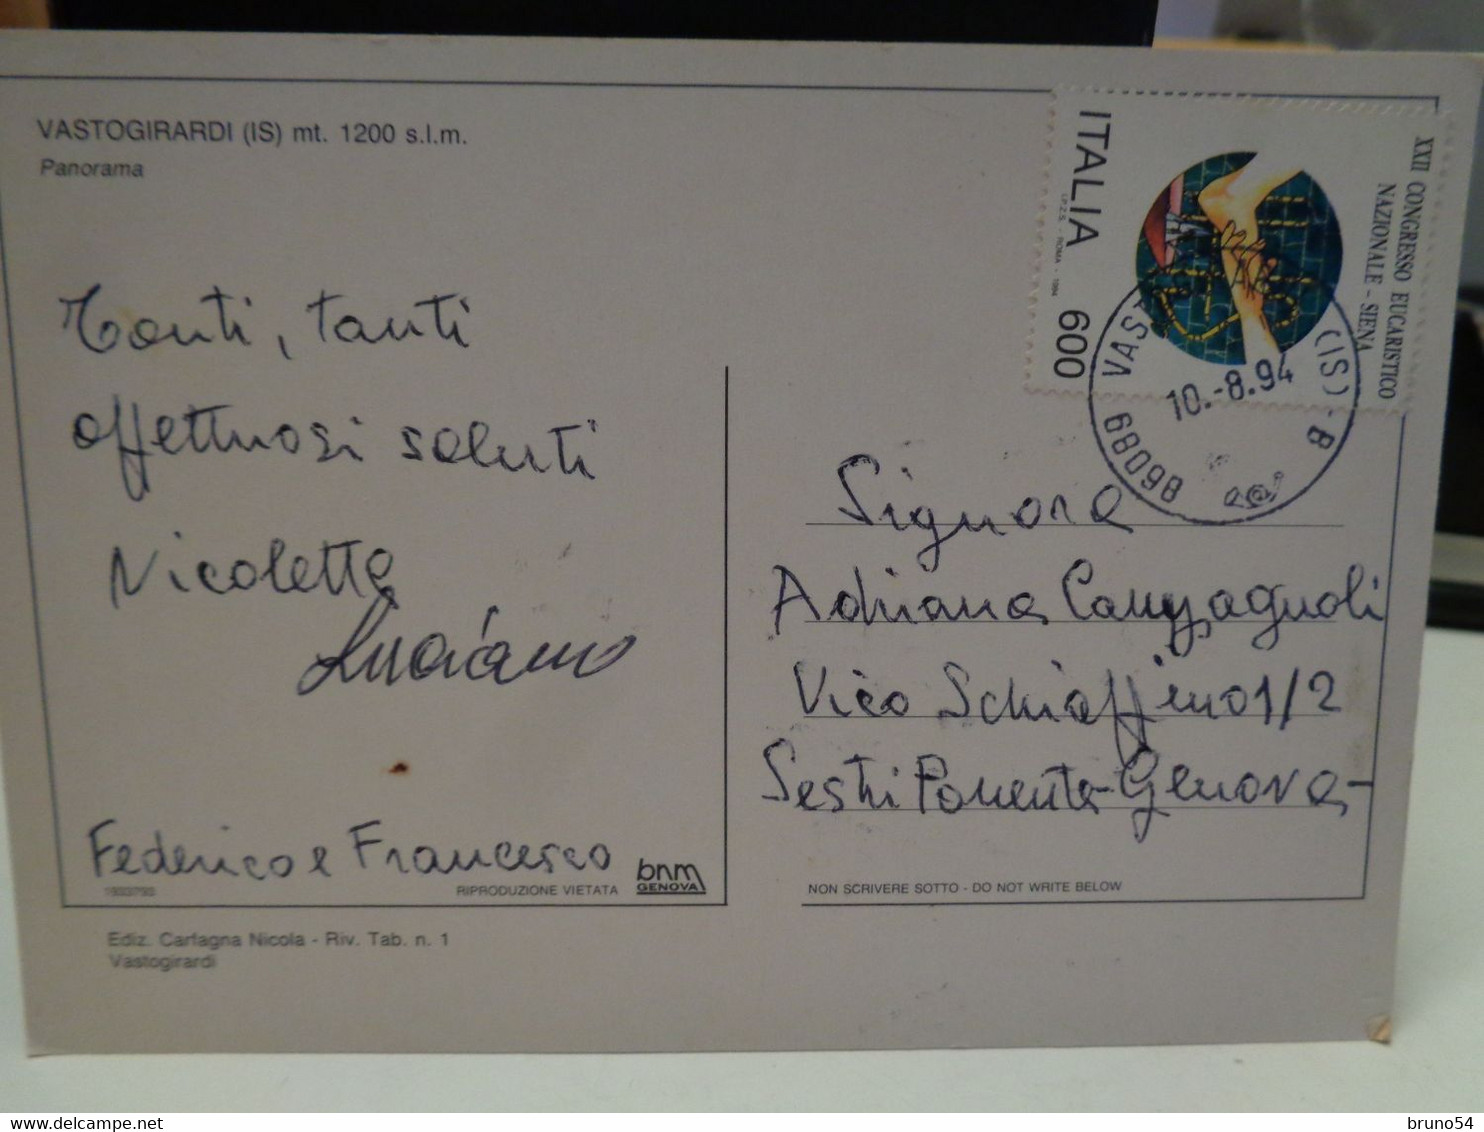 VASTOGIRARDI (IS) mt. 1200 s.l.m.
Panorama
Tanti, tanti
affettuosi saluti
Nicoletta
Luciano
Federico e Francesco
RIPRODUZIONE VIETATA
bnm
GENOVA
Ediz. Carfagna Nicola - Riv. Tab. n. 1
Vastogirardi
XXII CONGRESSO EUCARISTICO
NAZIONALE - SIENA
ITALIA 600
I.P.Z.S. - ROMA - 1994
68098 VAST (IS) - B
10.-8.94
Signora
Adriana Campagnoli
Vico Schiaffino 1/2
Sestri Ponente - Genova -
NON SCRIVERE SOTTO - DO NOT WRITE BELOW
bruno54